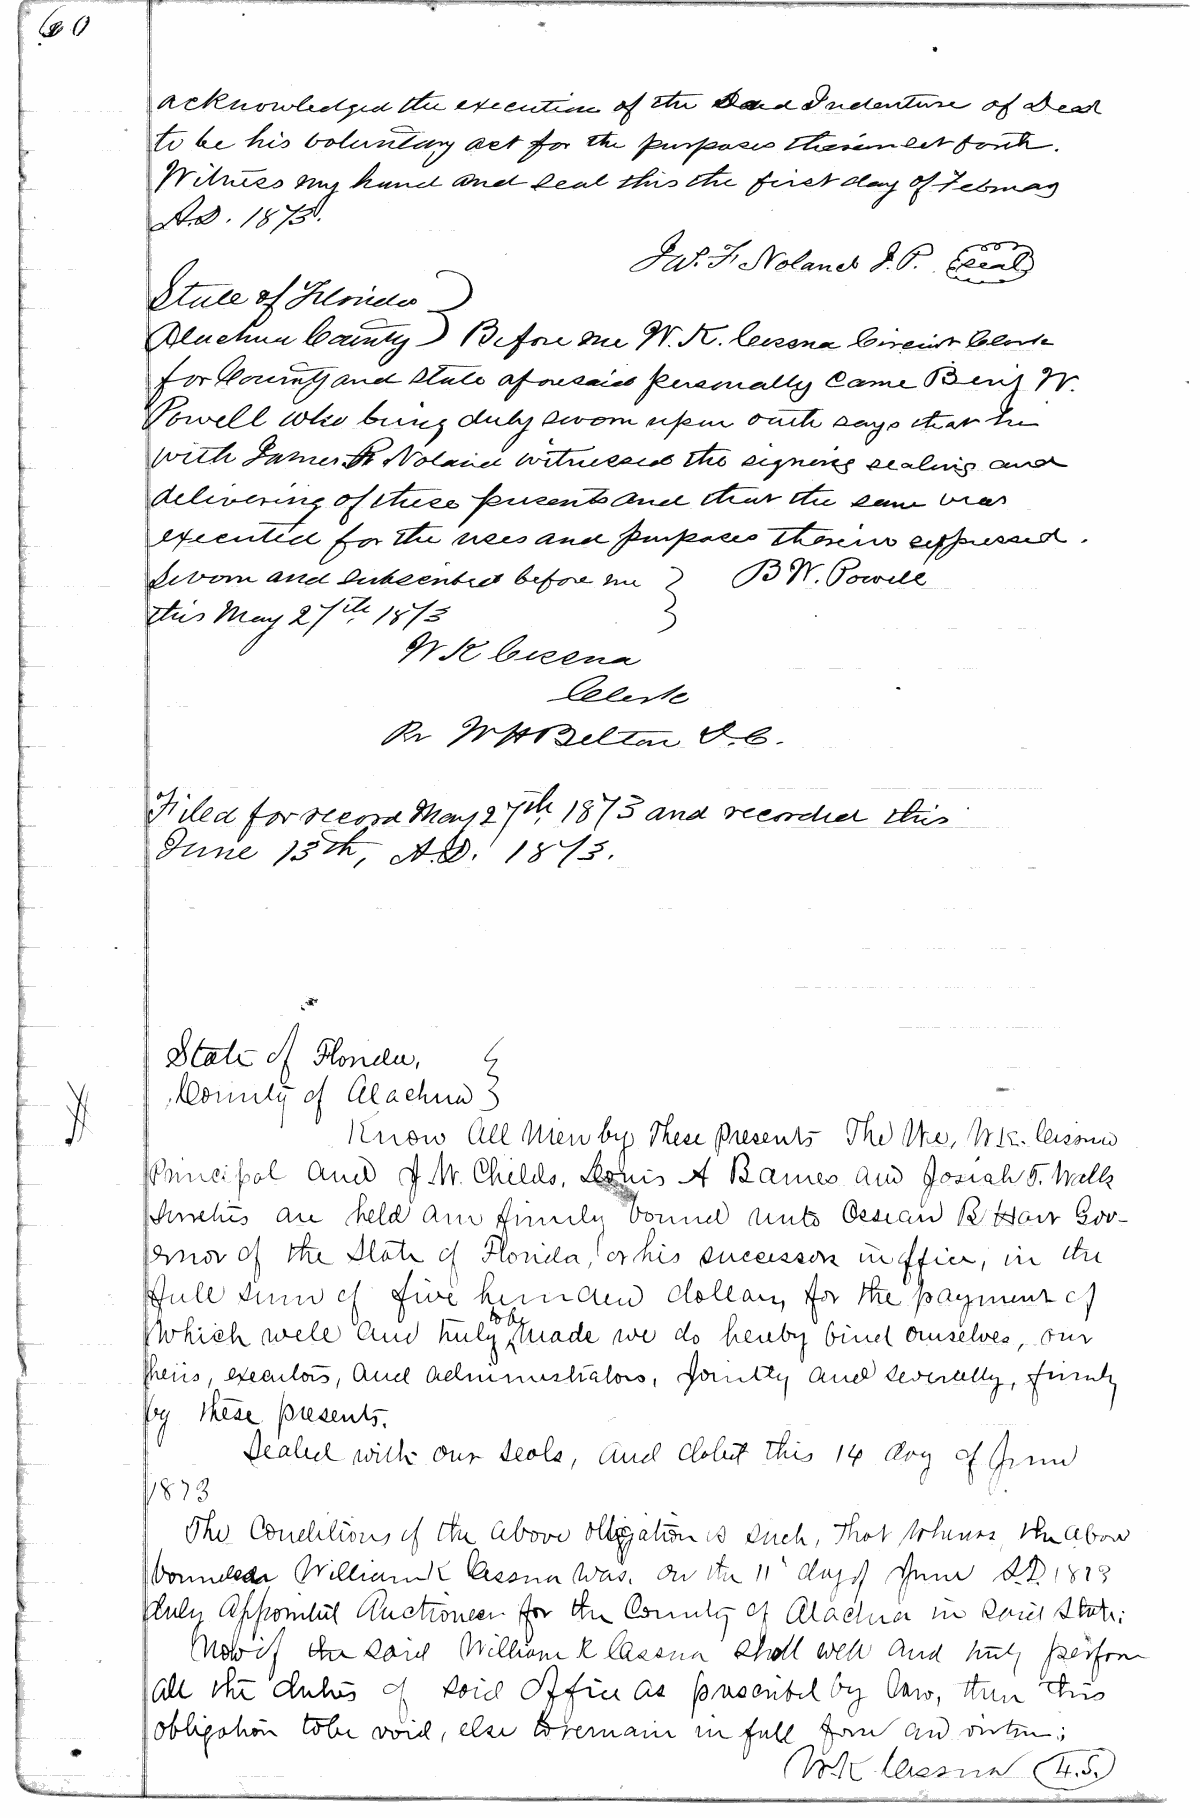 60
acknowledged the execution of the said Indenture of Deed
to be his voluntary act for the purposes therein set forth.
Witness my hand and seal this the first day of February
A.D. 1873.
Jas. F. Noland J.P. Seal
State of Florida
Alachua County } Before me W. K. Cessna Circuit Clerk
for County and State aforesaid personally came Benj W.
Powell who being duly sworn upon oath says that he
with James F. Noland witnessed the signing sealing and
delivering of these presents and that the same was
executed for the uses and purposes therein expressed.
Sworn and subscribed before me } B W. Powell
this May 27th 1873
W K Cessna
Clerk
Pr W H Belton D.C.
Filed for record May 27th 1873 and recorded this
June 13th, A.D. 1873.
State of Florida, }
County of Alachua }
Know All Men by These Presents The We, W.K. Cessna
Principal and J. W. Childs, Louis A Barnes and Josiah T. Walls
Sureties are held and firmly bound unto Ossian B Hart Gov-
ernor of the State of Florida, or his successors in office, in the
full sum of five hundred dollars, for the payment of
which well and truly to be made we do hereby bind ourselves, our
heirs, executors, and administrators, Jointly and severally, firmly
by these presents.
Sealed with our seals, and dated this 14 day of June
1873
The Conditions of the above obligation is such, That Whereas, the above
bounden William K Cessna was, on the 11 day of June A.D. 1873
duly Appointed Auctioneer for the County of Alachua in said State:
Now if the said William K Cessna shall well and truly perform
all the duties of said Office as prescribed by law, then this
obligation to be void, else to remain in full force and virtue;
W.K. Cessna L.S.